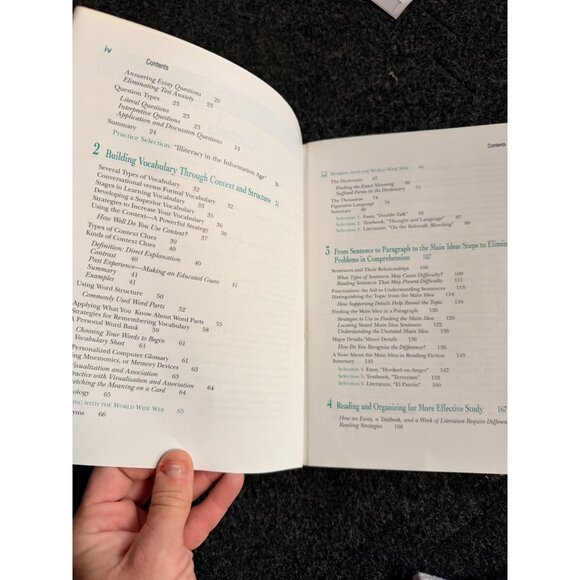 iv
Contents
Answering Essay Questions 20
Eliminating Test Anxiety 23
Question Types 23
Literal Questions 23
Interpretive Questions 23
Application and Discussion Questions 24
Summary 24
Practice Selection: "Illiteracy in the Information Age"
2 Building Vocabulary Through Context and Structure
Several Types of Vocabulary 32
Conversational versus Formal Vocabulary 32
Stages in Learning Vocabulary 35
Developing a Superior Vocabulary 35
Strategies to Increase Your Vocabulary 36
Using the Context—A Powerful Strategy 36
How Well Do You Use Context? 37
Types of Context Clues 39
Kinds of Context Clues 40
Definition: Direct Explanation 40
Contrast 40
Past Experience—Making an Educated Guess 41
Summary 41
Examples 41
Using Word Structure 50
Commonly Used Word Parts 52
Applying What You Know About Word Parts 55
Strategies for Remembering Vocabulary 58
A Personal Word Bank 59
Choosing Your Words to Begin 61
Vocabulary Sheet 61
Personalized Computer Glossary 61
ing Mnemonics, or Memory Devices 63
Visualization and Association 63
Practice with Visualization and Association 64
etching the Meaning on a Card 64
ology 65
ing with the World Wide Web 65
yms 66
Contents
Working with the World Wide Web 66
The Dictionary 67
Finding the Exact Meaning 69
Suffixed Forms in the Dictionary 71
The Thesaurus 74
Figurative Language 76
Summary
Selection 1: Essay, "Double Talk" 82
Selection 2: Textbook, "Thought and Language" 87
Selection 3: Literature, "On the Sidewalk, Bleeding" 99
3 From Sentence to Paragraph to the Main Idea: Steps to Elimin
Problems in Comprehension 107
Sentences and Their Relationships 108
What Types of Sentences May Cause Difficulty? 109
Reading Sentences That May Present Difficulty 111
Punctuation: An Aid to Understanding Sentences 113
Distinguishing the Topic from the Main Idea 114
How Supporting Details Help Reveal the Topic 116
Finding the Main Idea in a Paragraph 119
Strategies to Use in Finding the Main Idea 120
Locating Stated Main Idea Sentences 122
Understanding the Unstated Main Idea 126
Major Details/Minor Details 136
How Do You Recognize the Difference? 136
A Note About the Main Idea in Reading Fiction 143
Summary 145
Selection 4: Essay, "Hooked on Anger" 147
Selection 5: Textbook, "Terrorism" 152
Selection 6: Literature, "El Patrón" 160
4 Reading and Organizing for More Effective Study 167
How an Essay, a Textbook, and a Work of Literature Require Differen
Reading Strategies 168